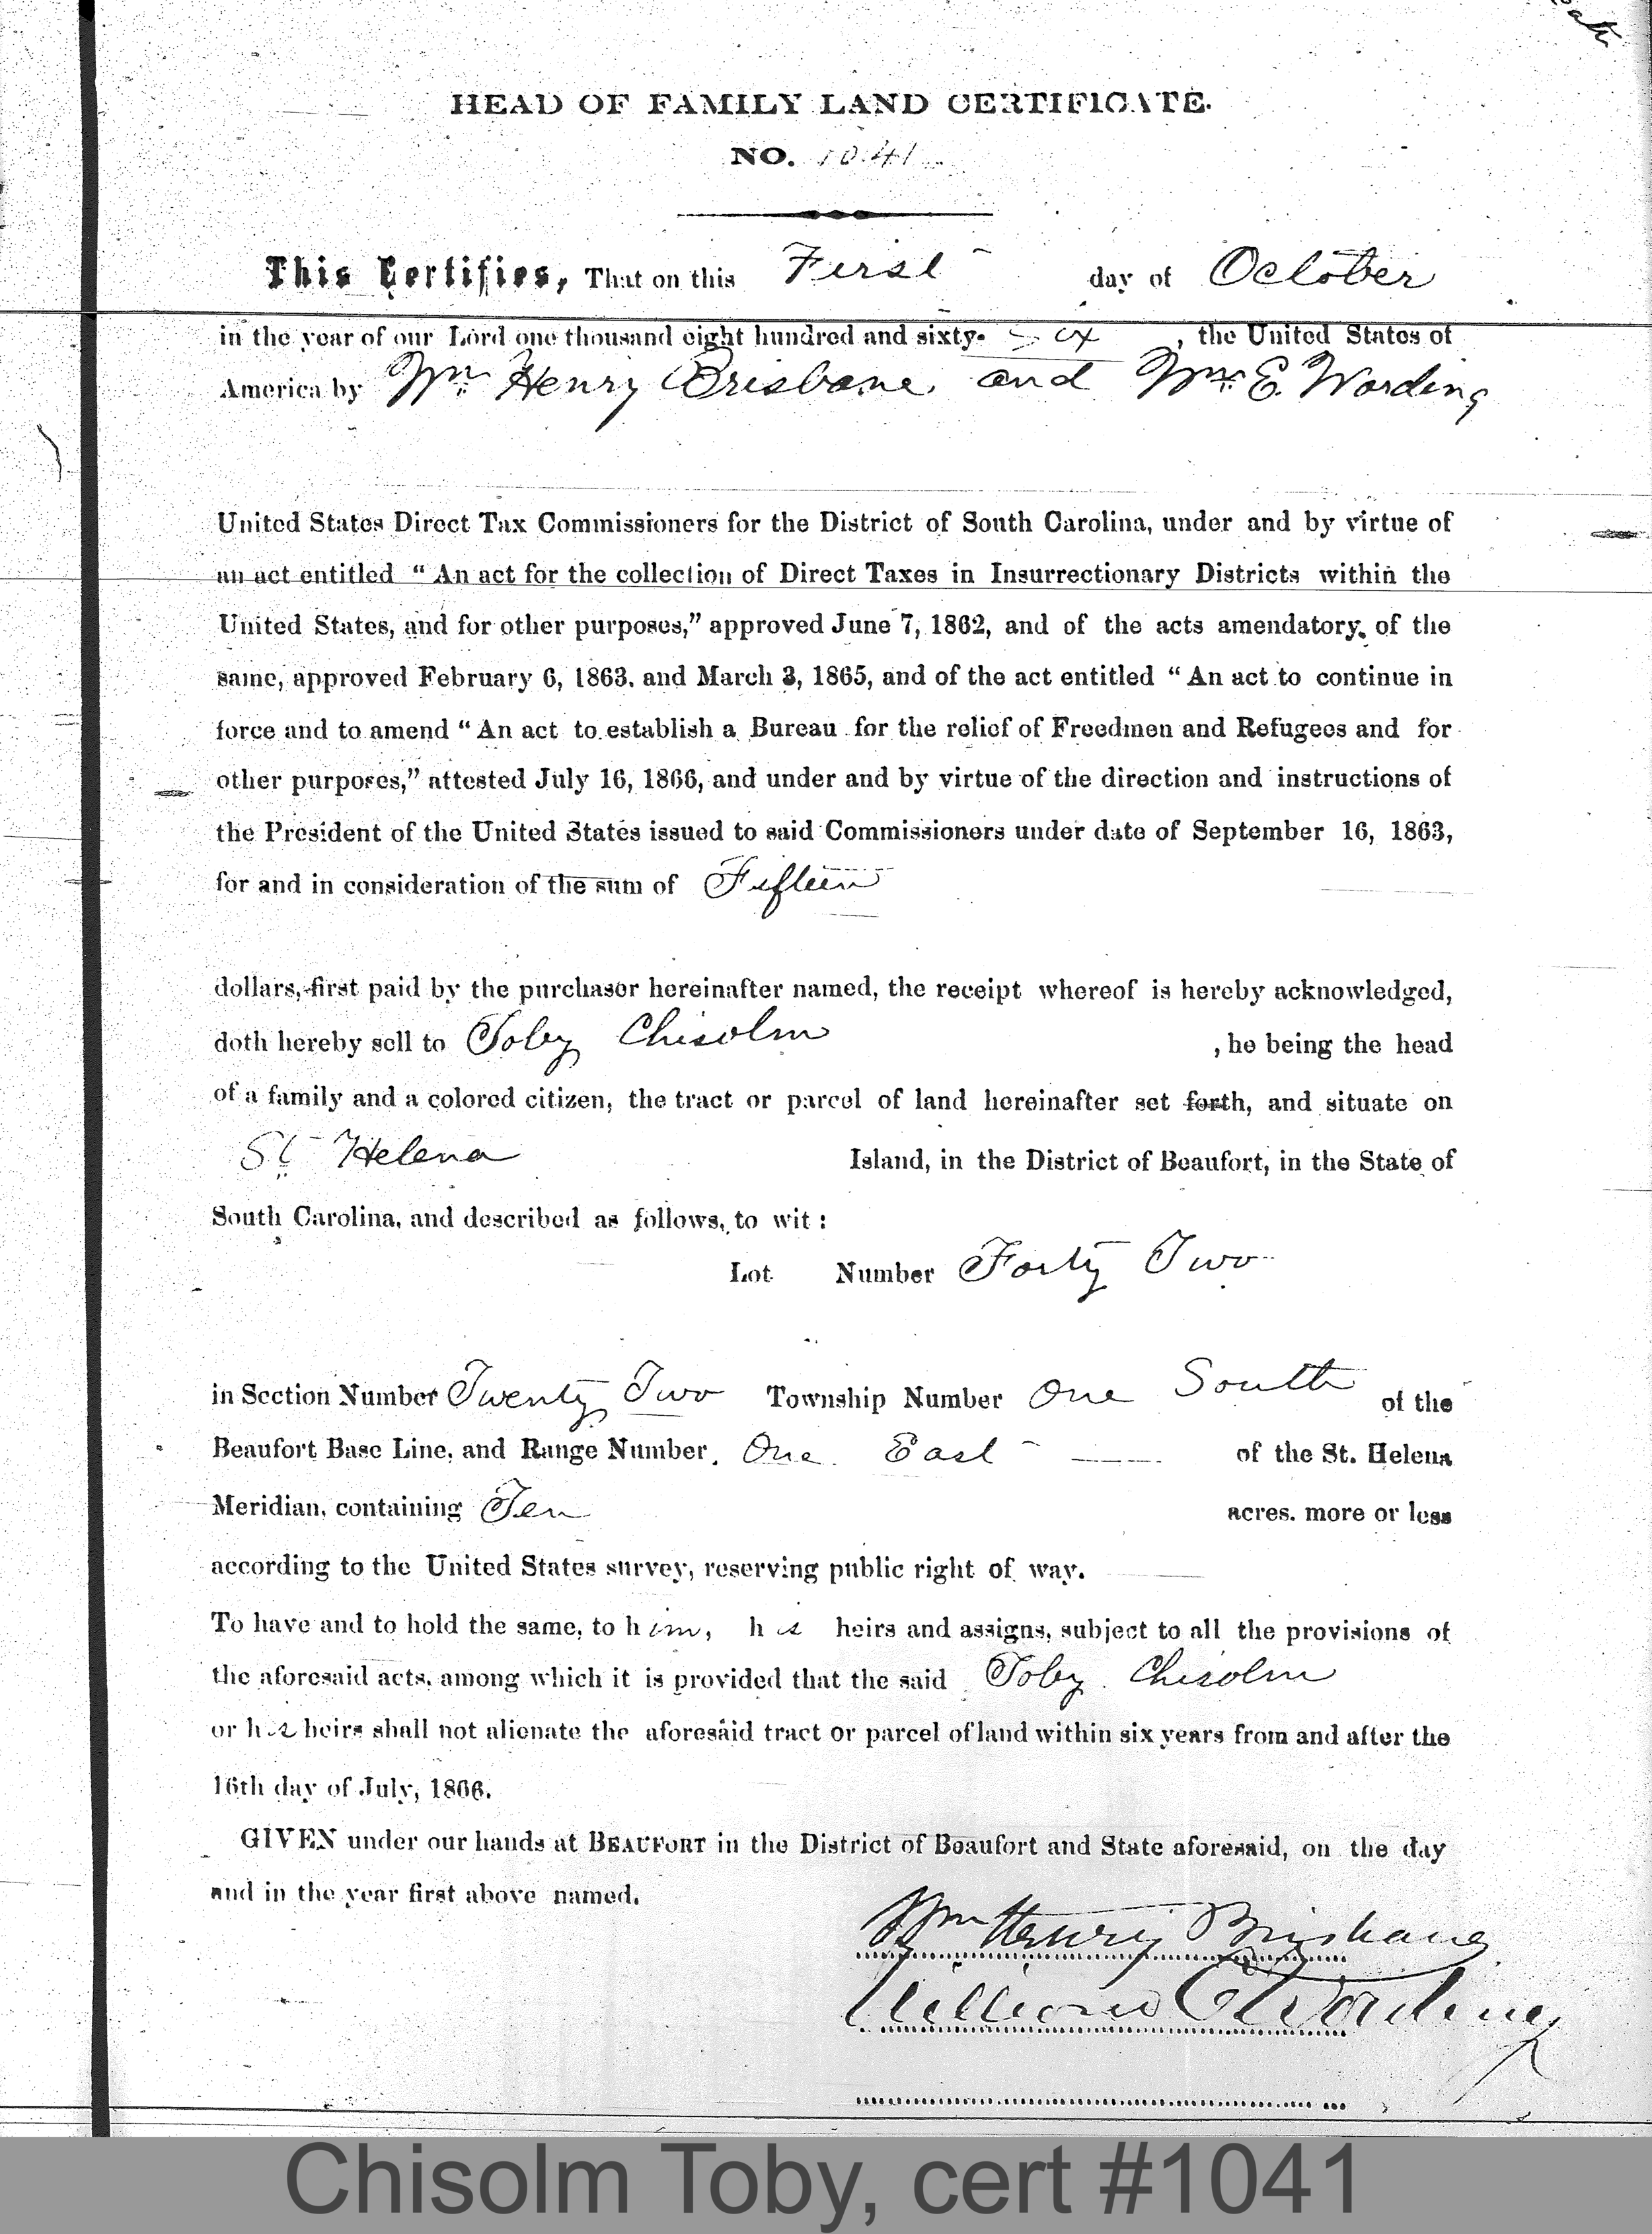 HEAD OF FAMILY LAND CERTIFICATE.
NO. 1041
This Certifies, That on this First day of October
in the year of our Lord one thousand eight hundred and sixty-six, the United States of
America by Wm Henry Brisbane and Wm E. Wording
United States Direct Tax Commissioners for the District of South Carolina, under and by virtue of
an act entitled “An act for the collection of Direct Taxes in Insurrectionary Districts within the
United States, and for other purposes,” approved June 7, 1862, and of the acts amendatory of the
same, approved February 6, 1863, and March 3, 1865, and of the act entitled “An act to continue in
force and to amend “An act to establish a Bureau for the relief of Freedmen and Refugees and for
other purposes,” attested July 16, 1866, and under and by virtue of the direction and instructions of
the President of the United States issued to said Commissioners under date of September 16, 1863,
for and in consideration of the sum of Fifteen
dollars, first paid by the purchaser hereinafter named, the receipt whereof is hereby acknowledged,
doth hereby sell to Toby Chisolm , he being the head
of a family and a colored citizen, the tract or parcel of land hereinafter set forth, and situate on
St Helena Island, in the District of Beaufort, in the State of
South Carolina, and described as follows, to wit:
Lot Number Forty Two
in Section Number Twenty Two Township Number One South of the
Beaufort Base Line, and Range Number One East of the St. Helena
Meridian, containing Ten acres. more or less
according to the United States survey, reserving public right of way.
To have and to hold the same, to him, his heirs and assigns, subject to all the provisions of
the aforesaid acts, among which it is provided that the said Toby Chisolm
or his heirs shall not alienate the aforesaid tract or parcel of land within six years from and after the
16th day of July, 1866.
GIVEN under our hands at BEAUFORT in the District of Beaufort and State aforesaid, on the day
and in the year first above named.
Wm Henry Brisbane
William E Wording
Chisolm Toby, cert #1041